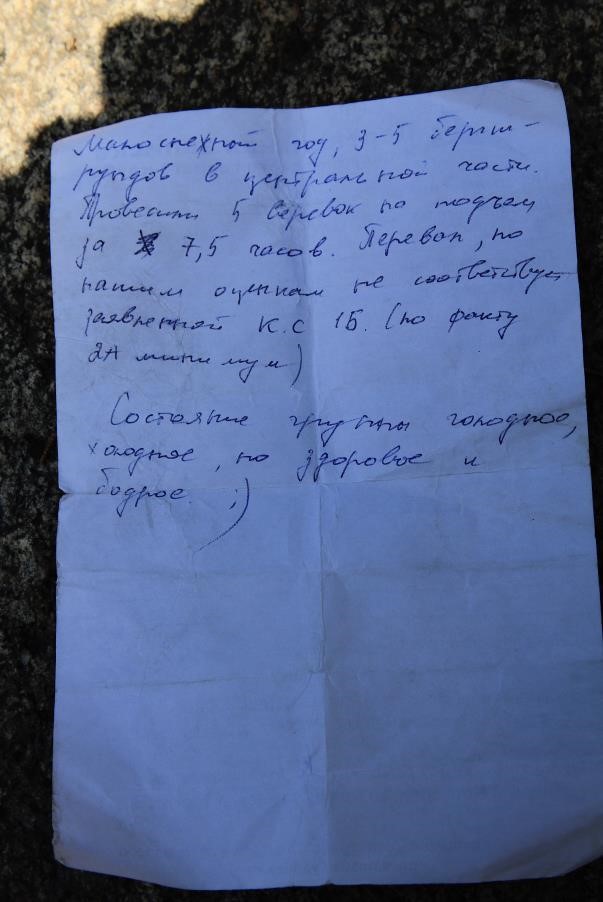 Малоснежный год, 3-5 бергш-
рундов в центральной части.
Провесили 5 веревок на подъем
за 7,5 часов. Перевал, по
нашим оценкам не соответствует
заявленной К.С 1Б. (по факту
2А минимум)
Состояние группы голодное,
холодное, но здоровое и
бодрое. ;)